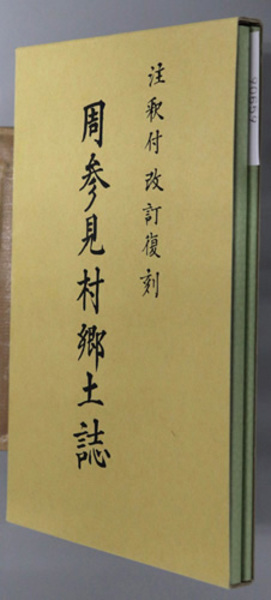 注釈付改訂復刻
周参見村郷土誌